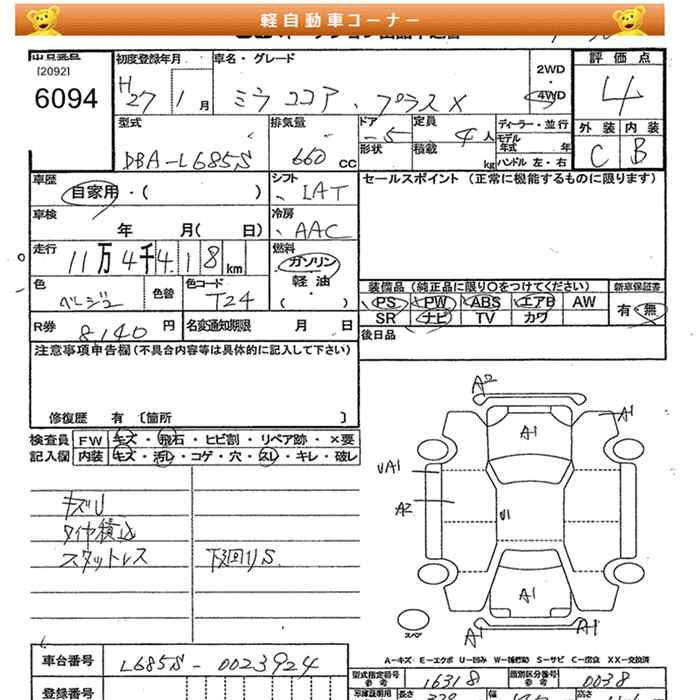 軽自動車コーナー
[2092]
6094
初度登録年月
H27 1月
車名・グレード
ミラココア・プラスX
2WD
・
4WD
評価点
4
型式
DBA-L685S
排気量
660 cc
ドア
5
形状
定員
4人
積載
kg
ディーラー・並行
モデル年式 年
ハンドル 左・右
外装 内装
C B
車歴
自家用・( )
シフト
IAT
セールスポイント (正常に機能するものに限ります)
車検
年 月( 日)
冷房
AAC
走行
11万4千418km
燃料
ガソリン
・
軽油
・
( )
色
ベージュ
色替
色コード
T24
装備品(純正品に限り〇をつけてください)
新車保証書
PS PW ABS エアB AW
SR ナビ TV カワ
有・無
R券
8,140円
名変通知期限 月 日
後日品
注意事項申告欄(不具合内容等は具体的に記入して下さい)
修復歴 有 〔箇所 〕
検査員
記入欄
FW キズ・飛石・ヒビ割・リペア跡・×要
内装 キズ・汚レ・コゲ・穴・スレ・キレ・破レ
キズU
タイヤ積込
スタットレス
下廻りS
A2
A1
A1
UA1
A2
U1
A1
A1
A1
スペア
A-キズ E-エクボ U-凹み W-補修跡 S-サビ C-腐食 XX-交換済
車台番号
L685S-0023924
型式指定番号
参考
16318
類別区分番号
参考
0038
登録番号
長さ
幅
高さ